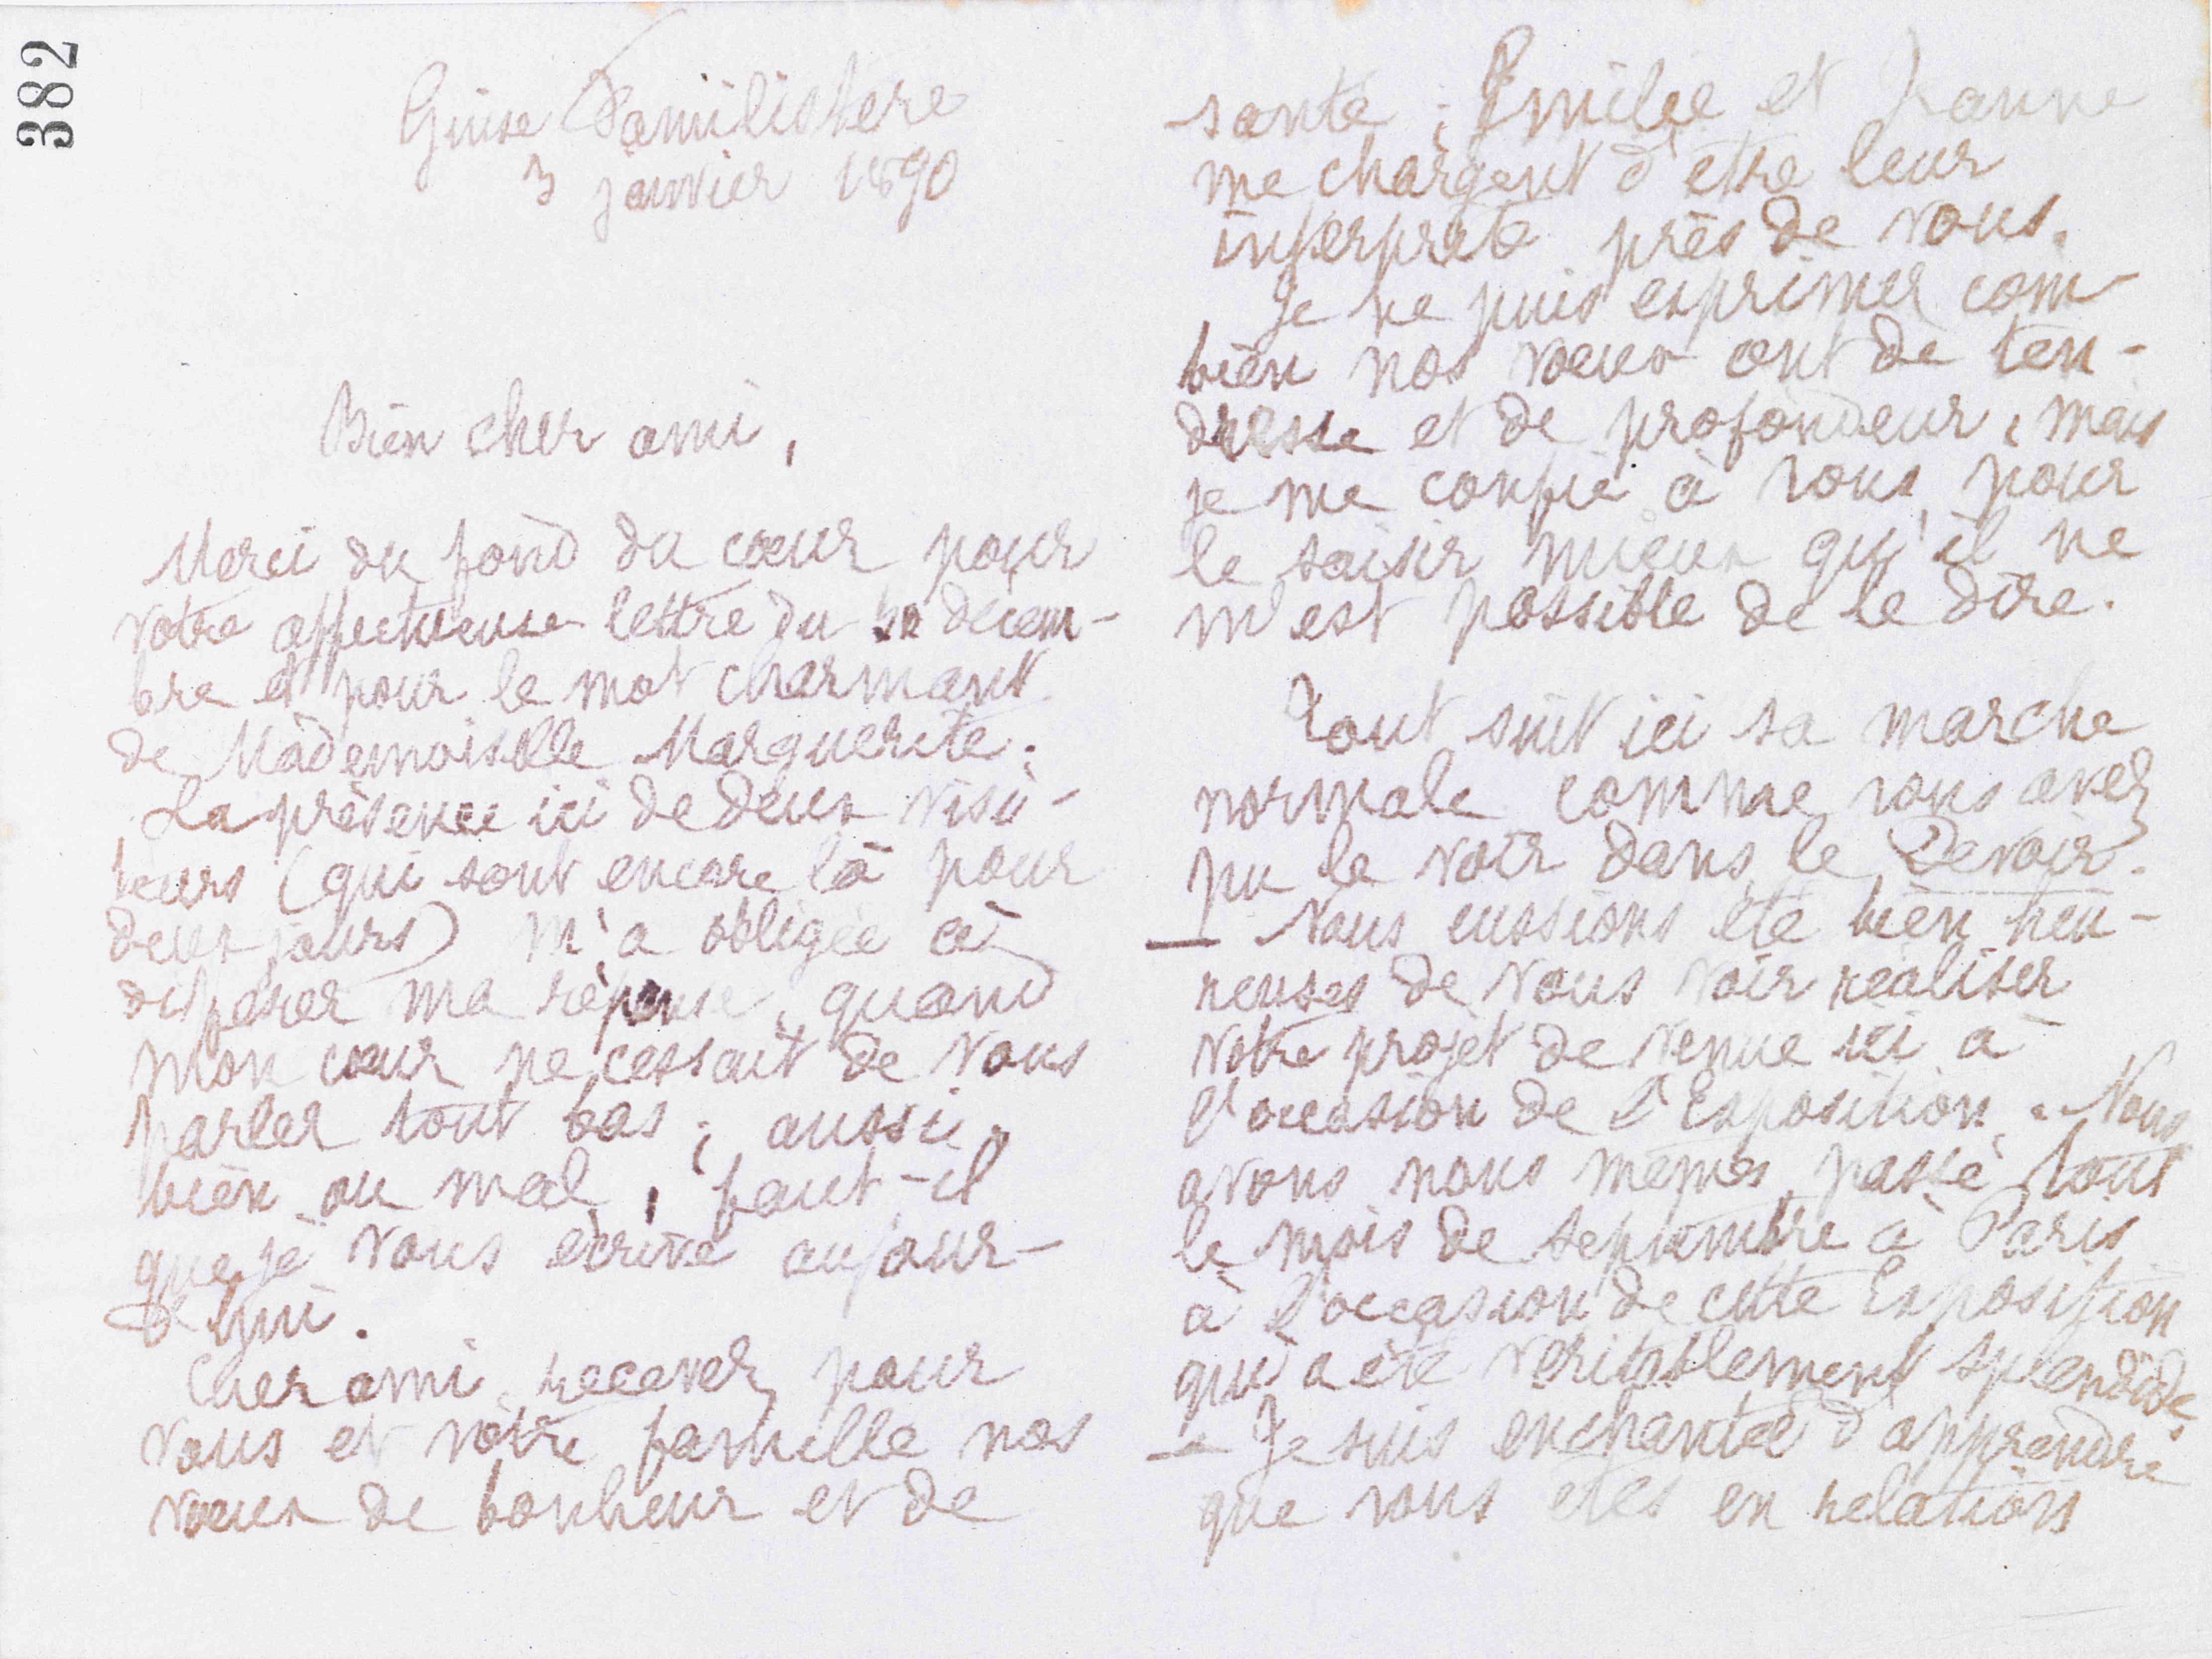 382
Guise Familistère
3 janvier 1890
Bien cher ami,
Merci du fond du cœur pour
votre affectueuse lettre du décem-
bre et pour le mot charmant
de Mademoiselle Marguerite.
La présence ici de deux visi-
teurs (qui sont encore là pour
deux jours) m'a obligée à
différer ma réponse, quand
mon cœur ne cessait de vous
parler tout bas ; aussi,
bien ou mal, faut-il
que je vous écrive aujour-
d'hui.
Cher ami, recevez pour
vous et votre famille nos
vœux de bonheur et de
santé ; Emilie et Jeanne
me chargent d'être leur
interprète près de vous.
Je ne puis exprimer com-
bien nos vœux ont de ten-
dresse et de profondeur, mais
je me confie à vous, pour
le saisir mieux qu'il ne
m'est possible de le dire.
Tout suit ici sa marche
normale comme vous avez
pu le voir dans le Devoir.
— Nous eussions été bien heu-
reuses de vous voir réaliser
votre projet de venue ici à
l'occasion de l'Exposition. Nous
avons nous mêmes passé tout
le mois de septembre à Paris
à l'occasion de cette Exposition
qui a été véritablement splendide.
— Je suis enchantée d'apprendre
que vous êtes en relations